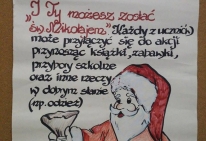 I Ty możesz zostać
"św. Mikołajem." (Każdy z uczniów)
może przyłączyć się do akcji
przynosząc książki, zabawki,
przybory szkolne
oraz inne rzeczy
w dobrym stanie
(np. odzież)